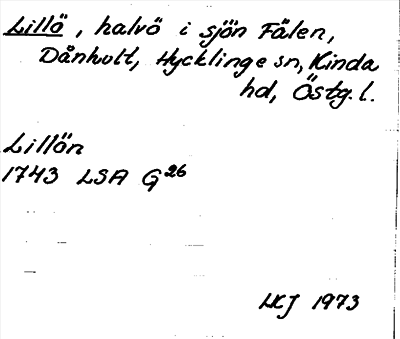 Lillö, halvö i sjön Fälen,
Dånhult, Hycklinge sn, Kinda
hd, Östg. l.
Lillön
1743 LSA G26
HKJ 1973